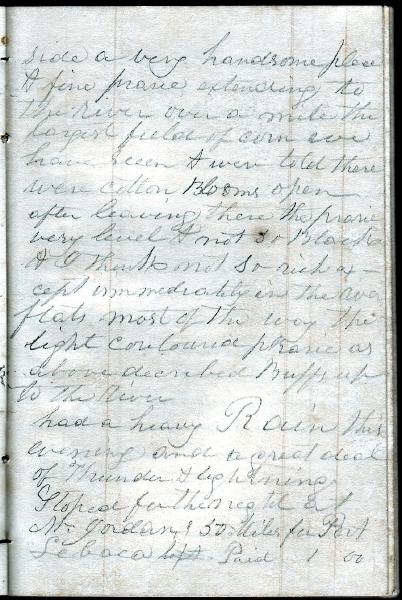 side a very handsome place
& fine prarie extending to
the river over a mile the
largest field of corn ever
have seen & were told there
were cotton Blooms open
after leaving there the prarie
very level & not so Black
& I think not so rich ex-
cept immediately in the
flats most of the way the
light couloured prarie as
above decribed Buffs up
to the river
had a heavy Rain this
evening and a great deal
of Thunder & lightning
Stoped for the night at
Mr Jordans 30 Miles for Port
Lebaca left Paid 1 00